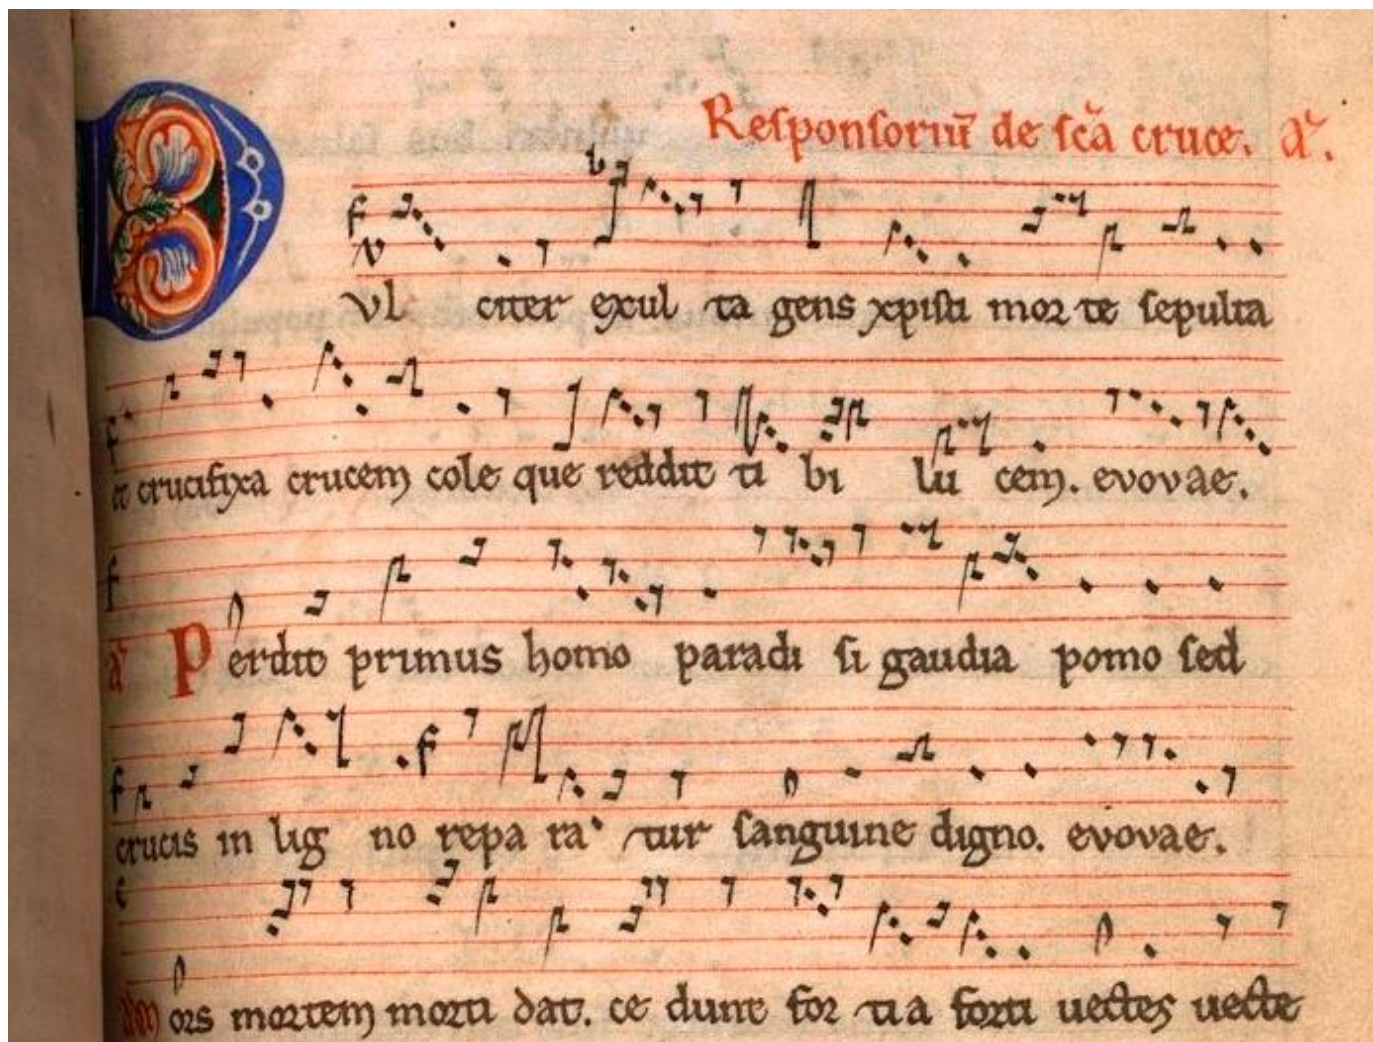 Responsoriū de sc̄a cruce. a᷑.
DVlciter exulta gens xpisti morte sepulta
et crucifixa crucem cole que reddit tibi lucem. evovae.
a᷑ Perdit primus homo paradisi gaudia pomo sed
crucis in ligno reparatur sanguine digno. evovae.
Mors mortem morti dat. cedunt fortia forti uectes uecte